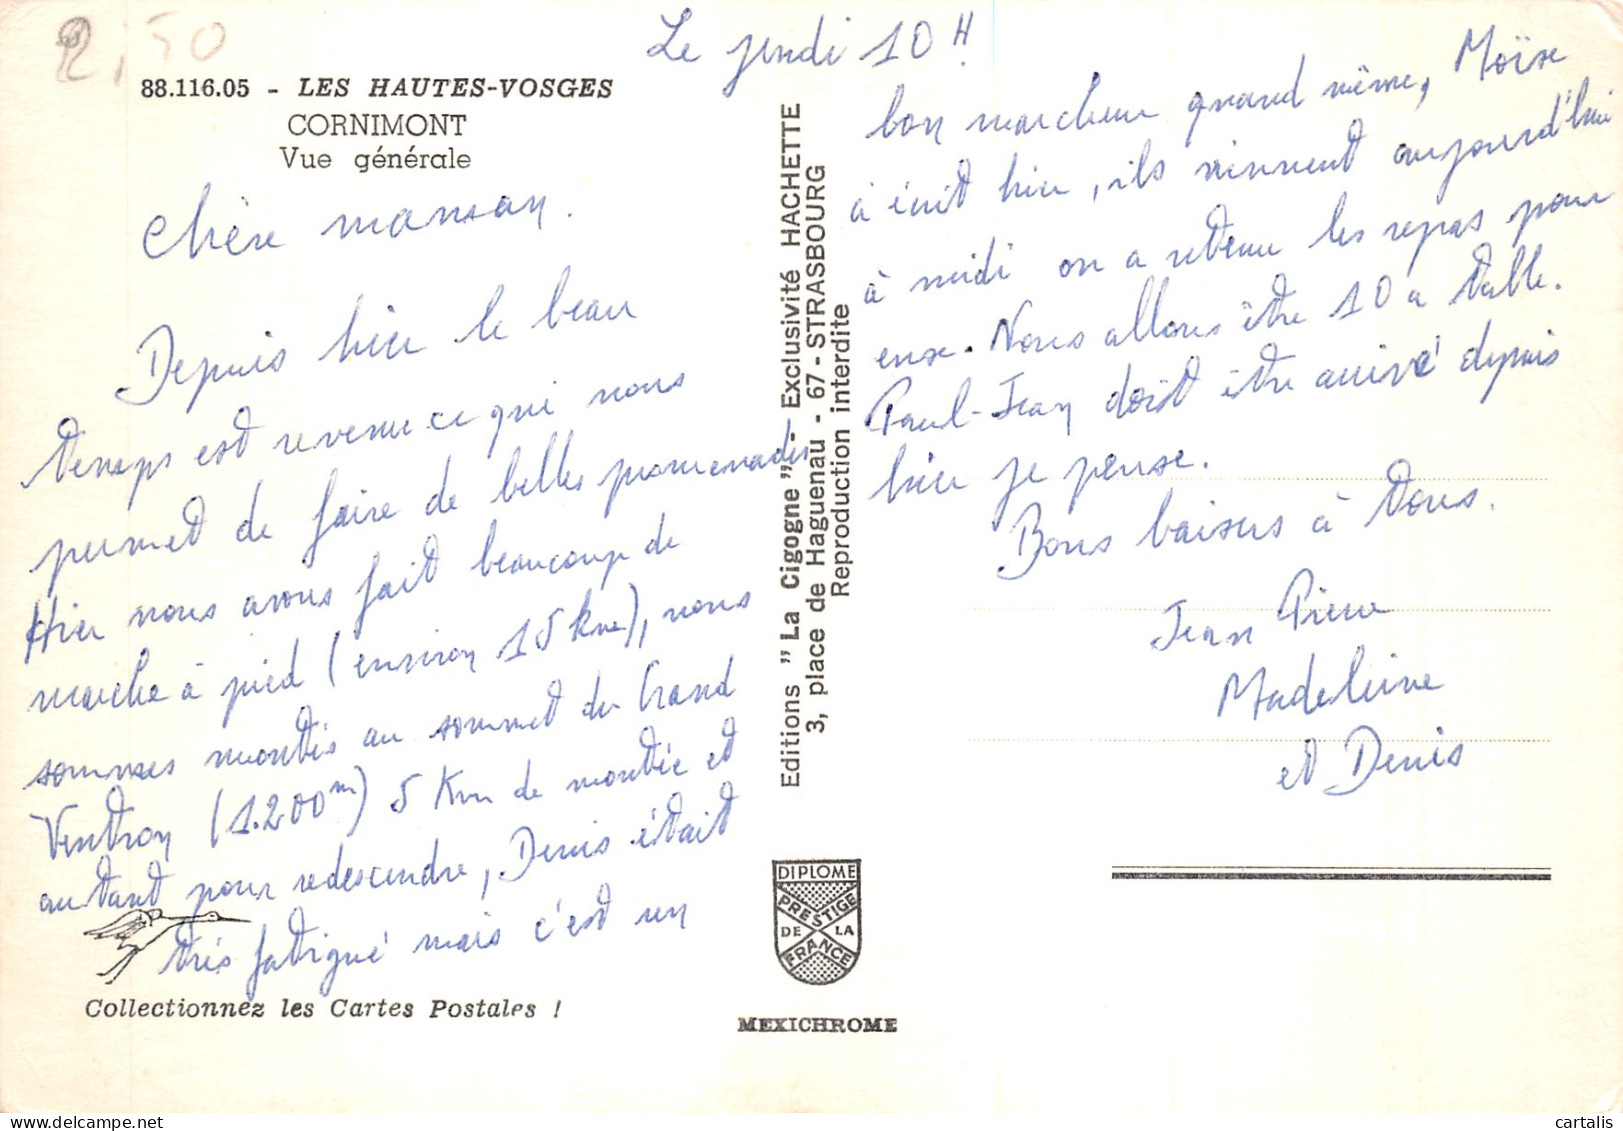 2,50
Le jeudi 10 H
88.116.05 - LES HAUTES-VOSGES
CORNIMONT
Vue générale
Chère maman.
Depuis hier le beau
temps est revenu ce qui nous
permet de faire de belles promenades
Hier nous avons fait beaucoup de
marche à pied (environ 15 km), nous
sommes montés au sommet du Grand
Ventron (1.200m) 5 Km de montée et
autant pour redescendre, Denis était
très fatigué mais c'est un
bon marcheur quand même, Moïse
à écrit hier, ils viennent aujourd'hui
à midi on a retenu les repas pour
eux. Nous allons être 10 a table.
Paul-Jean doit être arrivé depuis
hier je pense.
Bons baisers à tous.
Jean Pierre
Madeleine
et Denis
Editions "La Cigogne" - Exclusivité HACHETTE
3, place de Haguenau - 67 - STRASBOURG
Reproduction interdite
DIPLOME
PRESTIGE
DE LA
FRANCE
Collectionnez les Cartes Postales !
MEXICHROME
cartalis